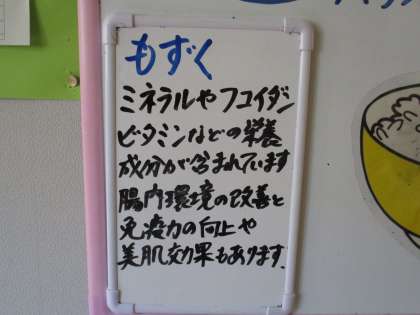 もずく
ミネラルやフコイダン
ビタミンなどの栄養
成分が含まれています
腸内環境の改善と
免疫力の向上や
美肌効果もあります.